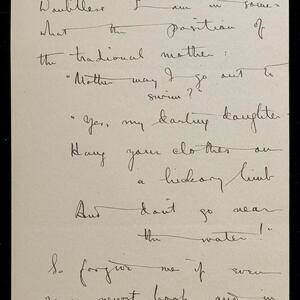 Doubtless I am in some-
what the position of
the tradional mother:
"Mother may I go out to
swim?"
"Yes, my darling daughter
Hang your clothes on
a hickory limb
And don't go near
the water!"
So forgive me if even
newest book and in